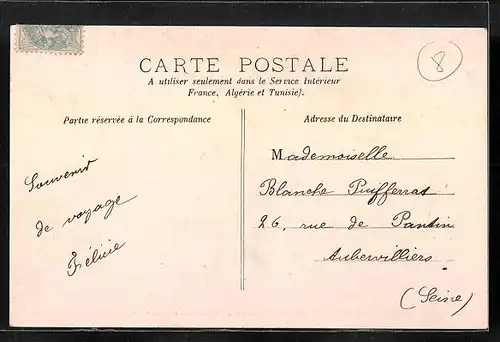 CARTE POSTALE
A utiliser seulement dans le Service Intérieur
France, Algérie et Tunisie).
8
Partie réservée à la Correspondance
Adresse du Destinataire
Souvenir
de voyage
Félicie
Mademoiselle
Blanche
26, rue de Pantin
Aubervilliers
(Seine)